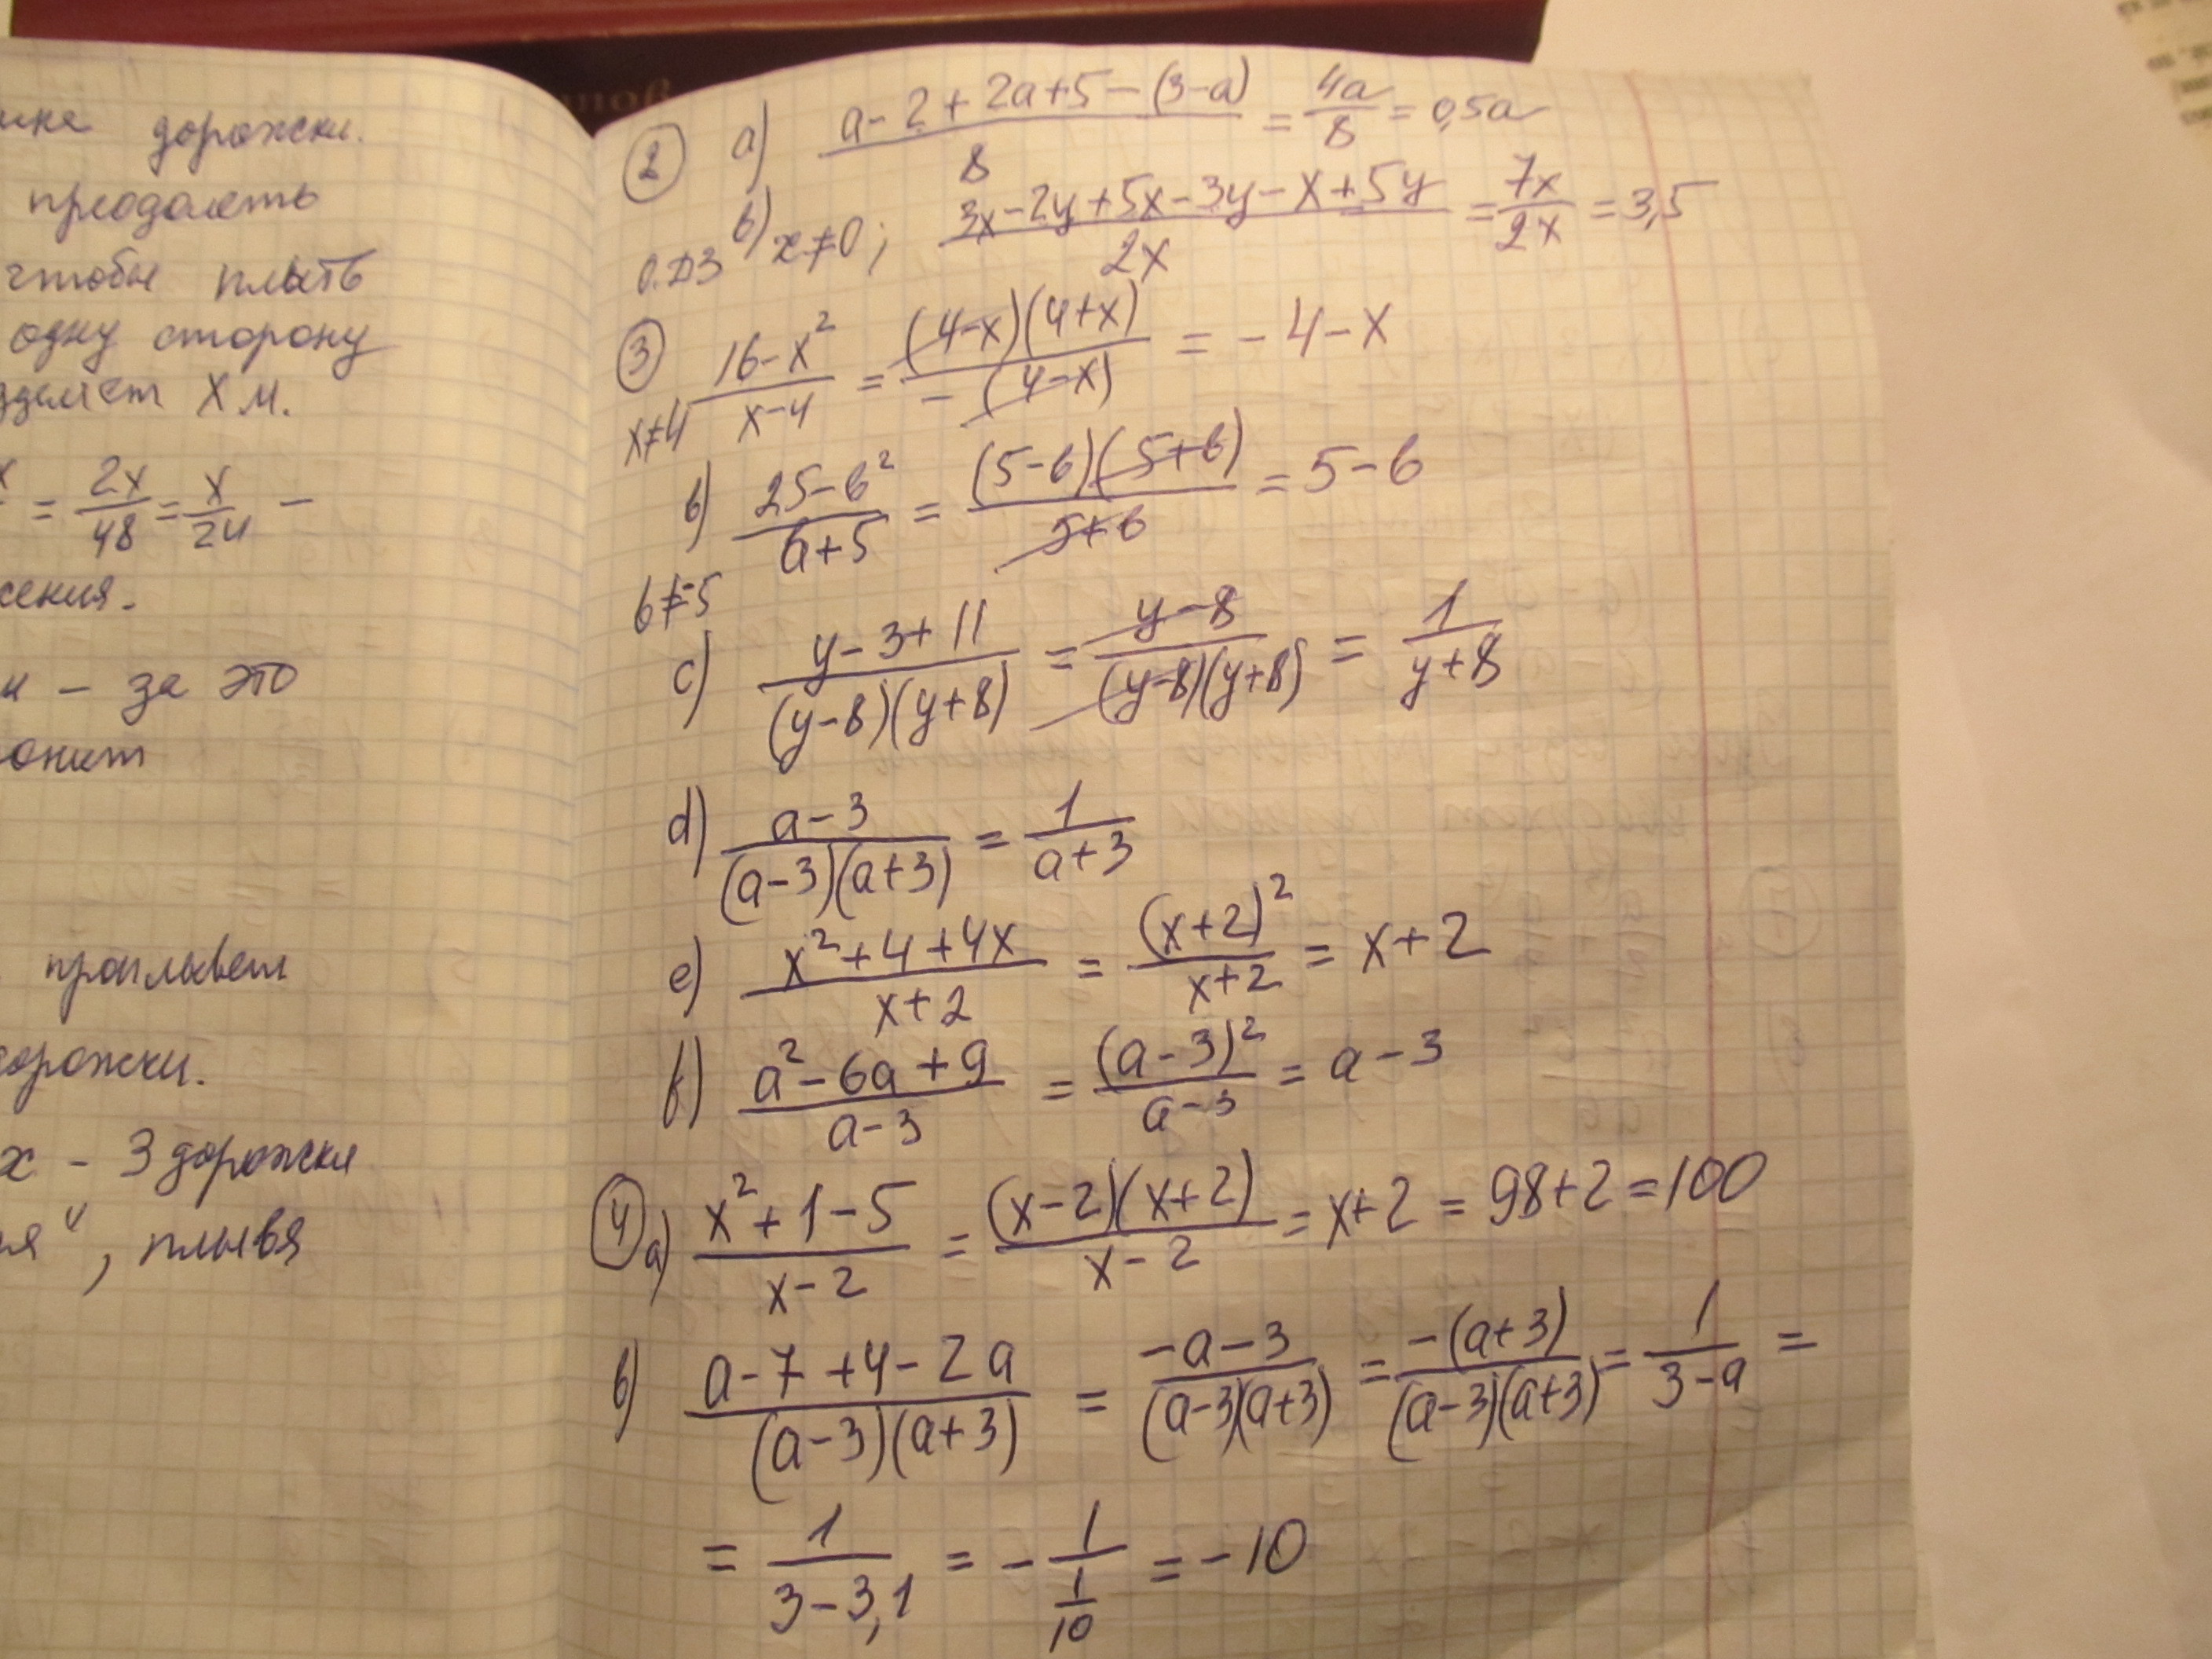 дорожки.
преодолеть
чтобы плыть
одну сторону
х м.
= 2x/48 = x/24 –
– за это
проплывет
х – 3 дорожки
", плывя
② a) (a-2+2a+5-(3-a))/8 = 4a/8 = 0,5a
О.ДЗ в) x≠0; (3x-2y+5x-3y-x+5y)/2x = 7x/2x = 3,5
③ x≠4 (16-x²)/(x-4) = ((4-x)(4+x))/(-(4-x)) = -4-x
в) (25-в²)/(в+5) = ((5-в)(5+в))/(5+в) = 5-в
в≠-5
c) (y-3+11)/((y-8)(y+8)) = (y-8)/((y-8)(y+8)) = 1/(y+8)
d) (a-3)/((a-3)(a+3)) = 1/(a+3)
e) (x²+4+4x)/(x+2) = (x+2)²/(x+2) = x+2
f) (a²-6a+9)/(a-3) = (a-3)²/(a-3) = a-3
④ a) (x²+1-5)/(x-2) = ((x-2)(x+2))/(x-2) = x+2 = 98+2 = 100
в) (a-7+4-2a)/((a-3)(a+3)) = (-a-3)/((a-3)(a+3)) = (-(a+3))/((a-3)(a+3)) = 1/(3-a) =
= 1/(3-3,1) = -1/(1/10) = -10